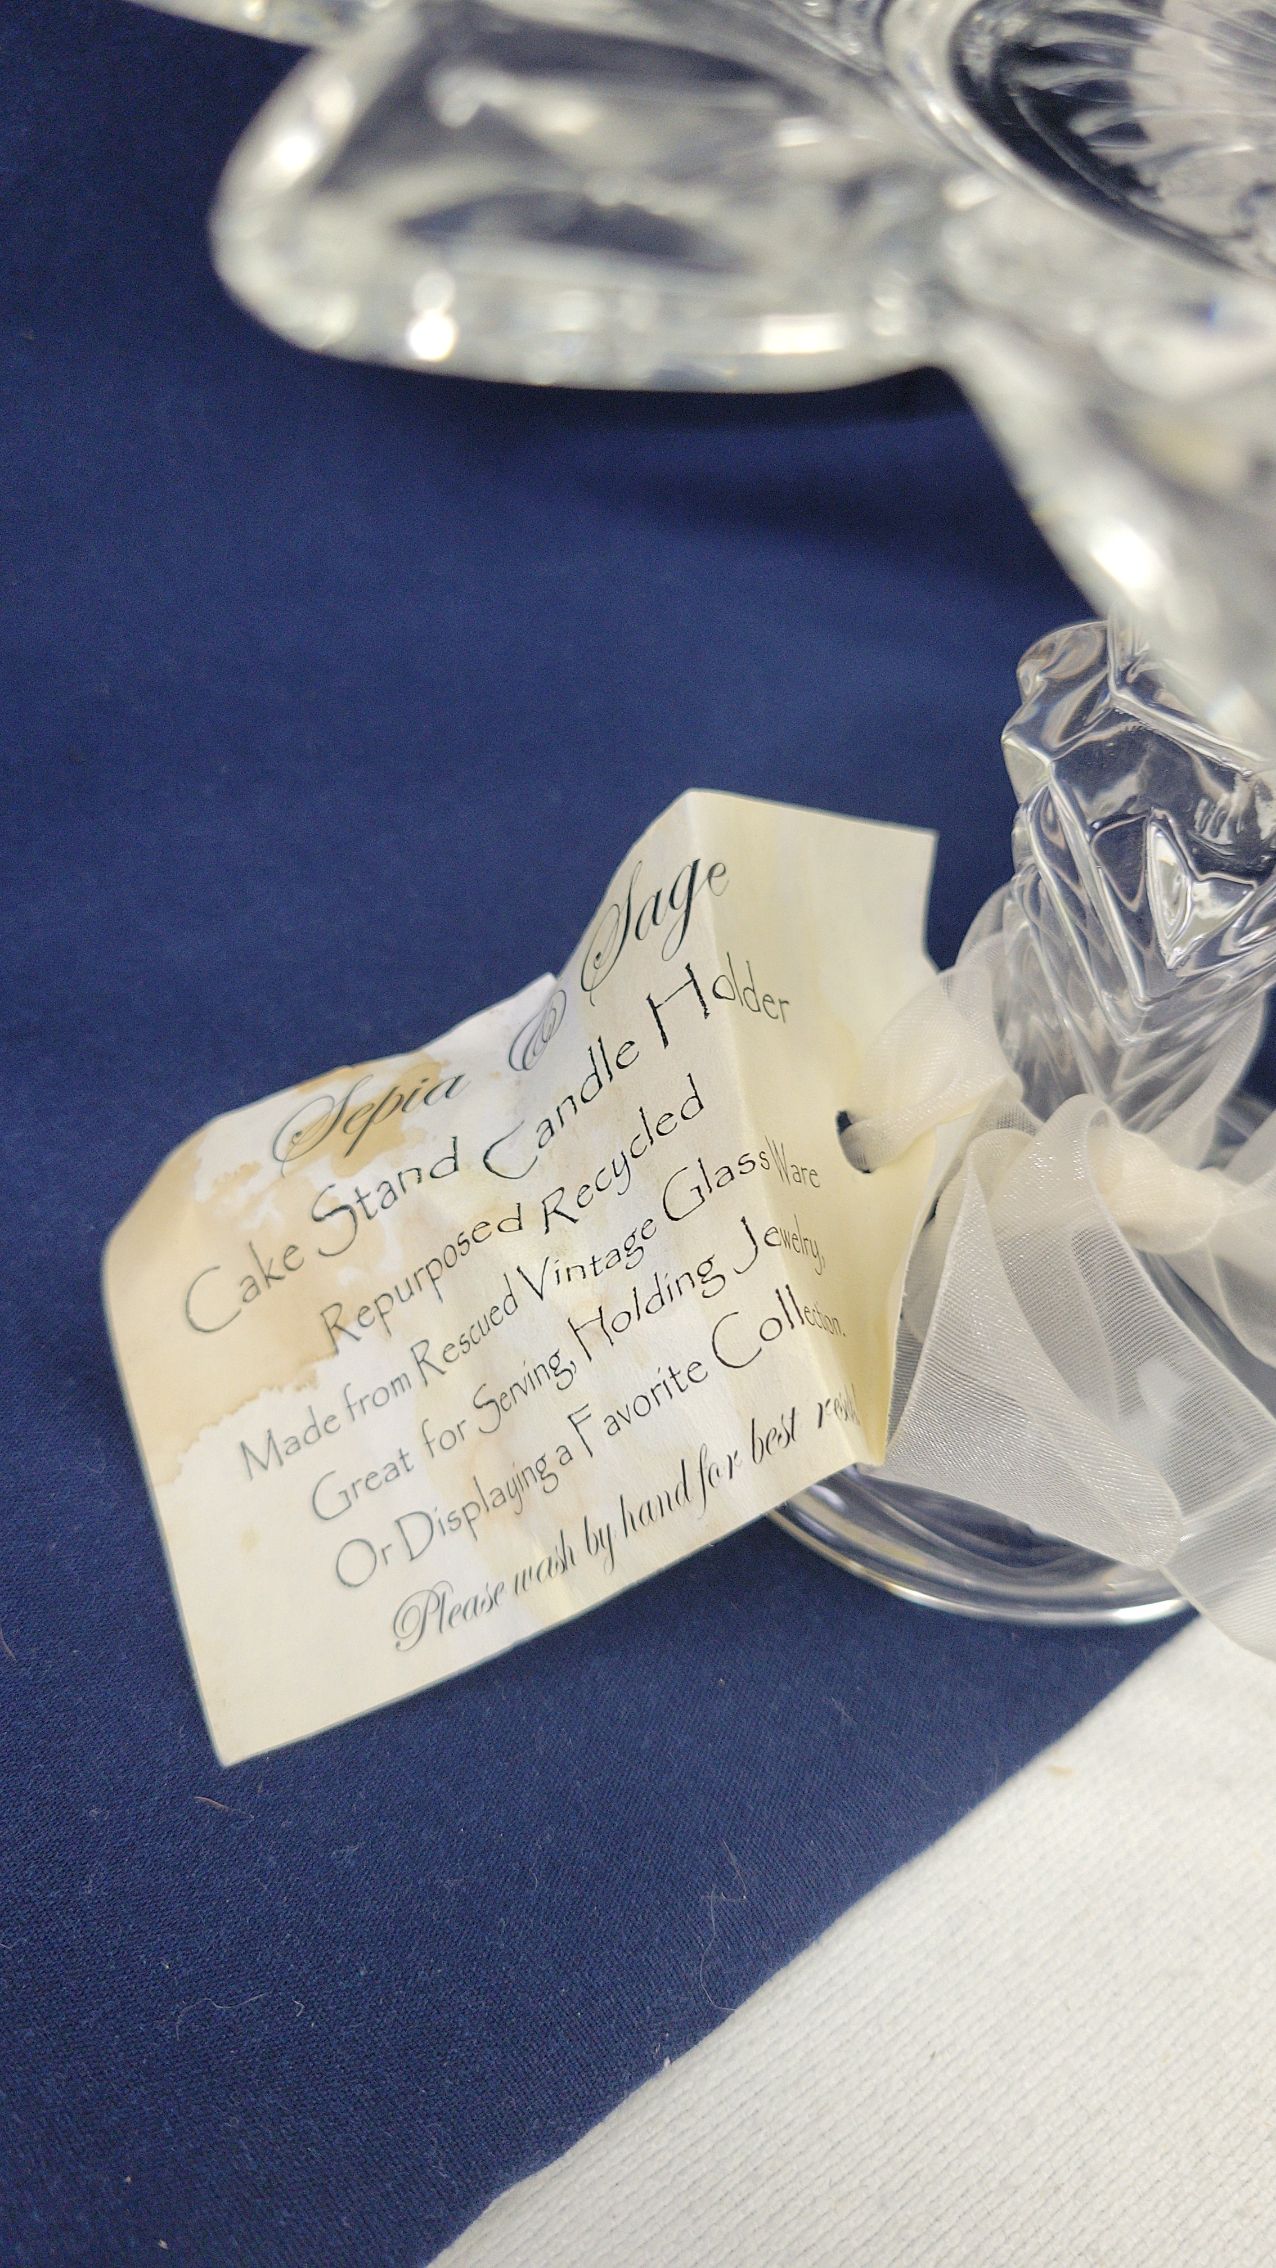 Sepia & Sage
Cake Stand Candle Holder
Repurposed Recycled
Made from Rescued Vintage GlassWare
Great for Serving, Holding Jewelry,
Or Displaying a Favorite Collection.
Please wash by hand for best result